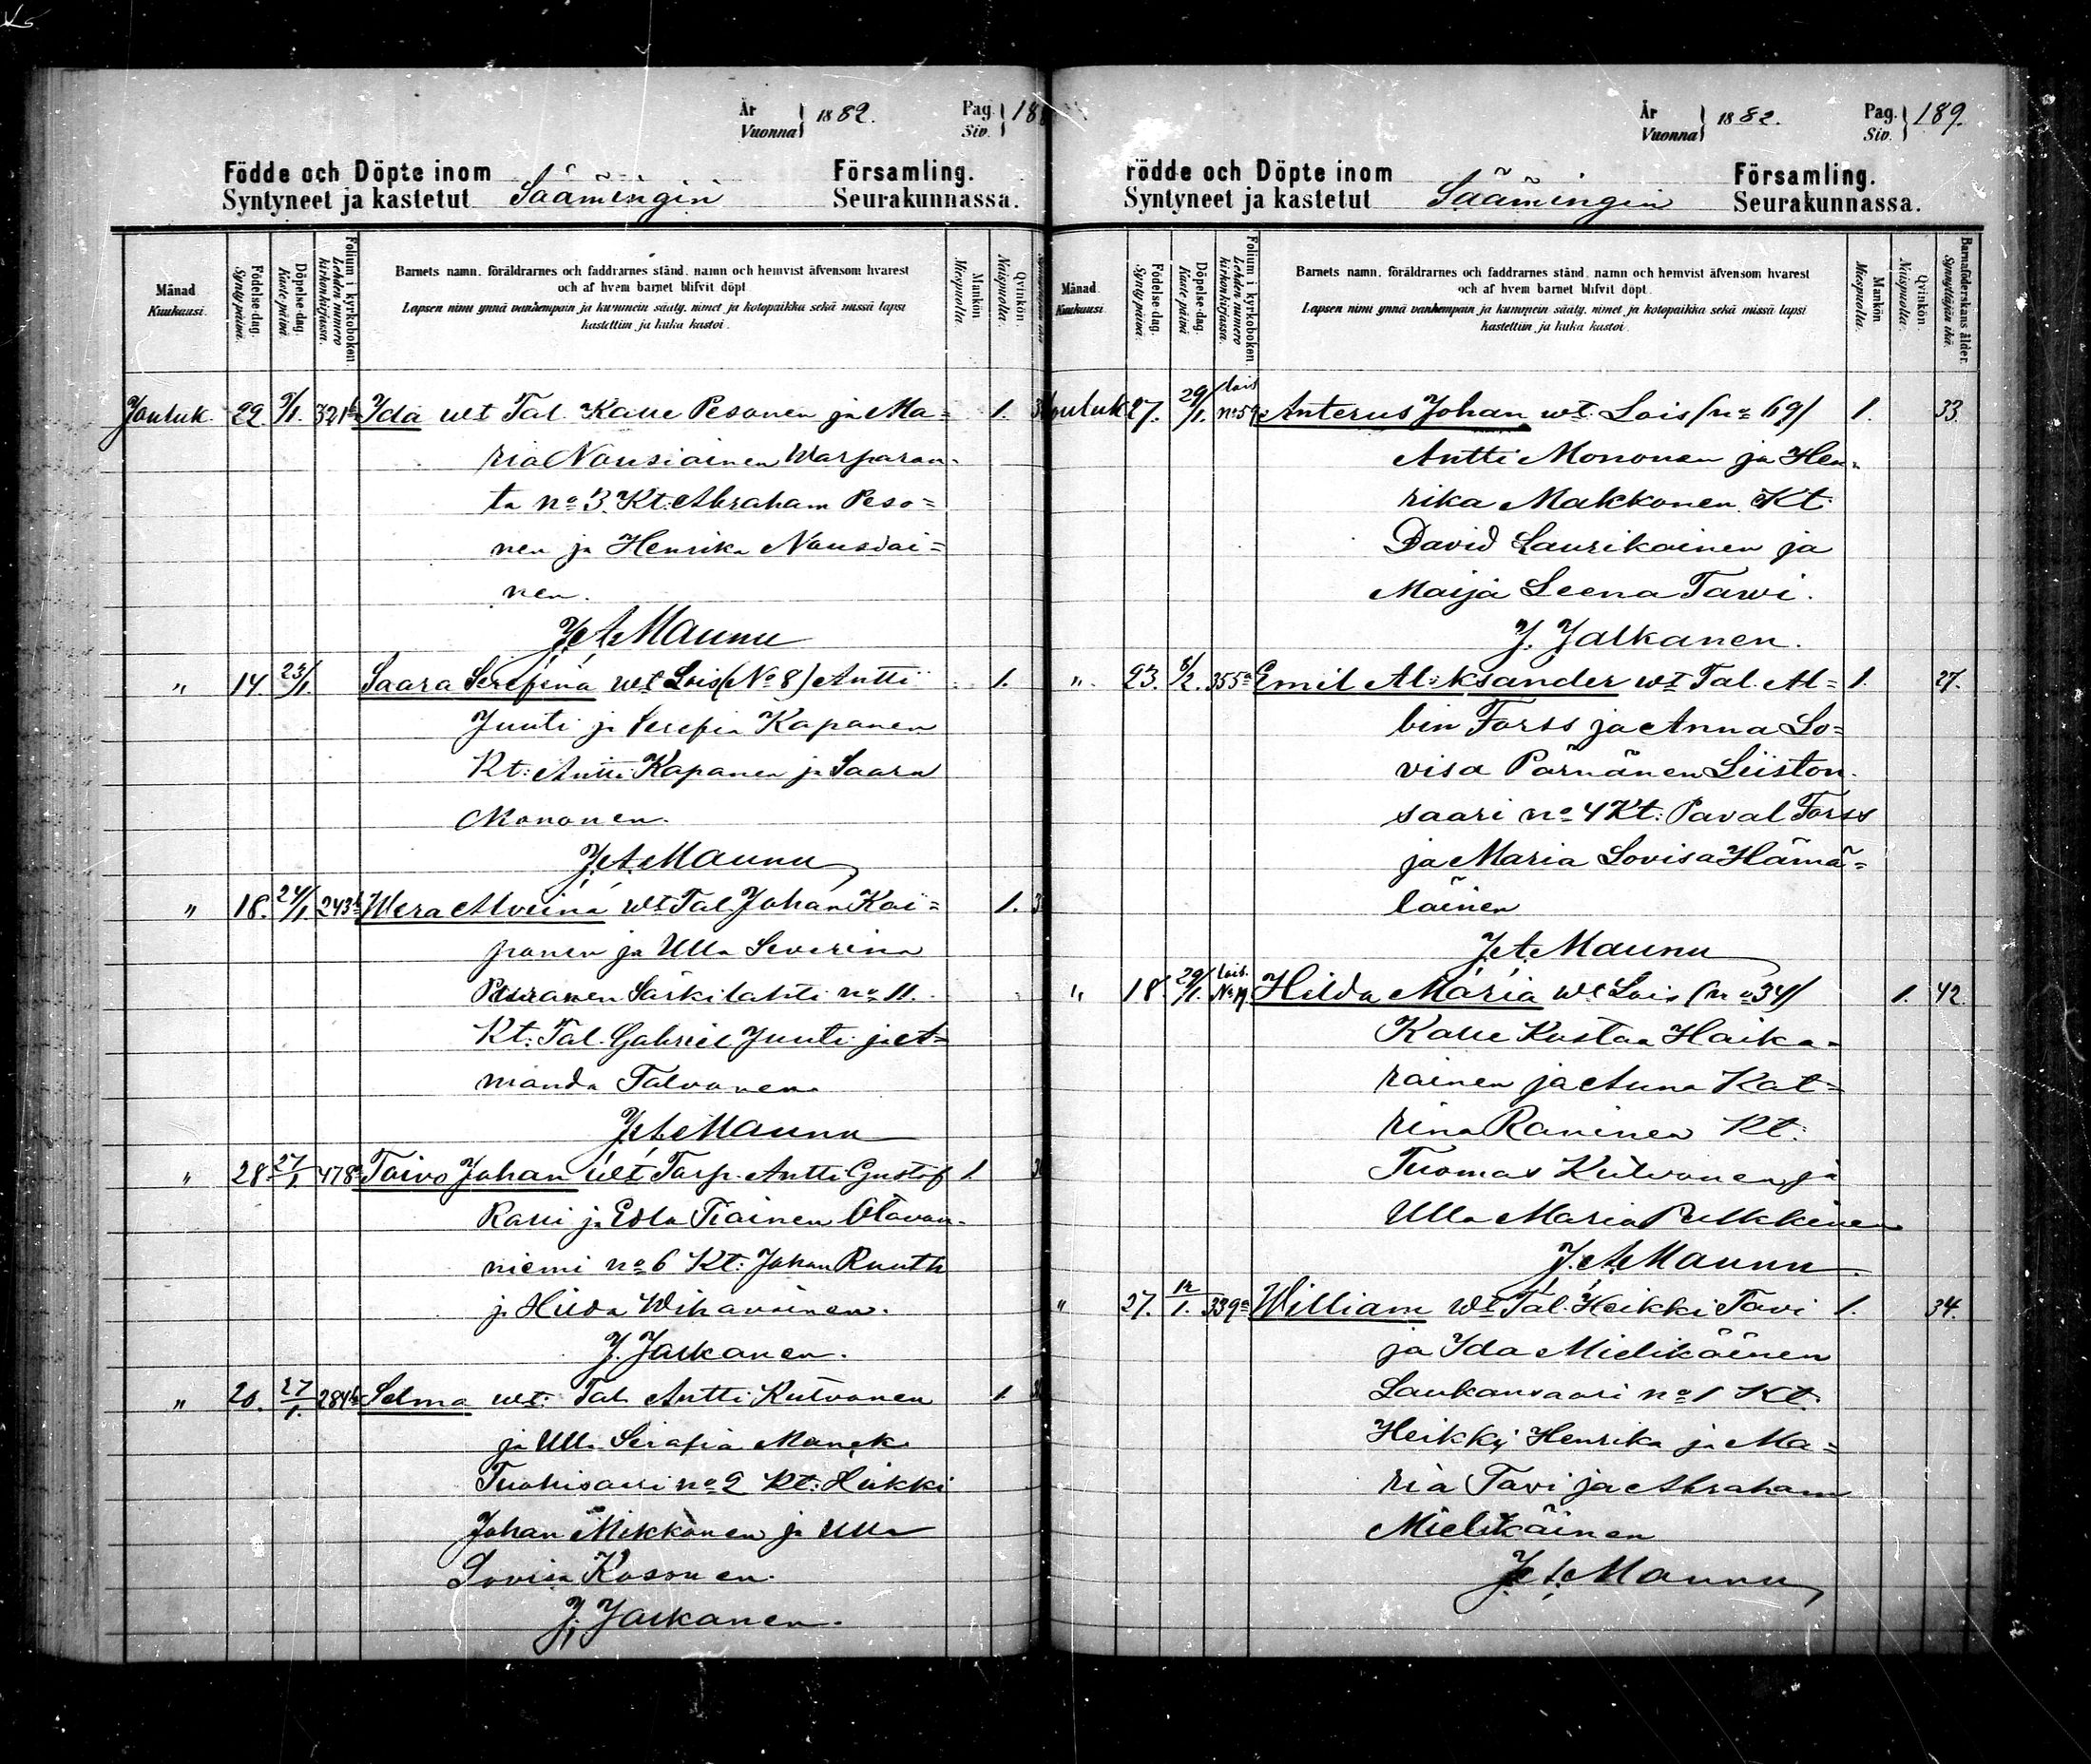 År Vuonna } 1882. Pag. Siv. } 18
Födde och Döpte inom Församling.
Syntyneet ja kastetut Säämingin Seurakunnassa.
Månad Kuukausi.
Födelse-dag. Synty päivä.
Döpelse-dag. Kaste päivä
Folium i kyrkoboken. Lehden numero kirkonkirjassa.
Barnets namn, föräldrarnes och faddrarnes stånd, namn och hemvist äfvensom hvarest
och af hvem barnet blifvit döpt
Lapsen nimi ynnä vanhempain ja kummein sääty, nimet ja kotopaikka sekä missä lapsi
kastettiin ja kuka kastoi.
Mankön Miespuolta.
Qvinkön. Naispuolta.
Jouluk. 29. 321 Ida wt Tal. Kalle Pesonen ja Ma= 1.
ria Nousiainen Warparan-
ta no 3. Kt: Abraham Peso=
nen ja Henrika Nousiai=
nen.
J. A. Maunu
" 14 23/1. Saara Serefina wt Lois (No 8) Antti 1.
Juuti ja Serefia Kapanen
Kt: Antti Kapanen ja Saara
Mononen.
J. A. Maunu
" 18. 24/1 243 Wera Alviina wt Tal Johan Kai= 1.
panen ja Ulla Severina
Särkilahti no 11.
Kt: Tal. Gabriel Juuti ja A=
manda Talvonen
J. A. Maunu
" 28. 27/1. 478 Toivo Johan wt Torp. Antti Gustaf 1.
ja Edla Tiainen Otavan-
niemi no 6 Kt: Johan Ruuth
ja Hilda Wihavainen.
J. Jalkanen.
" 20. 27/1. 284 Selma wt: Tal. Antti Kutvonen 1.
ja Ulla Serafia
Tuohisaari no 2 Kt: Heikki
Johan Mikkonen ja Ulla
Lovisa Kosonen.
J. Jalkanen.
År Vuonna } 1882. Pag. Siv. } 189.
Födde och Döpte inom Församling.
Syntyneet ja kastetut Säämingin Seurakunnassa.
Månad Kuukausi
Födelse-dag. Synty päivä.
Döpelse-dag. Kaste päivä
Folium i kyrkoboken. Lehden numero kirkonkirjassa.
Barnets namn, föräldrarnes och faddrarnes stånd, namn och hemvist äfvensom hvarest
och af hvem barnet blifvit döpt.
Lapsen nimi ynnä vanhempain ja kummein sääty, nimet ja kotopaikka sekä missä lapsi
kastettiin ja kuka kastoi.
Mankön Miespuolta.
Qvinkön. Naispuolta.
Barnaföderskans ålder. Synnyttäjän ikä.
ouluk 27. 29/1. lois no 59 Anterus Johan wt. Lois (no 69) 1. 33.
Antti Mononen ja Hen-
rika Makkonen. Kt:
David Laurikainen ja
Maija Leena Tawi.
J. Jalkanen.
" 23. 5/2. 355a Emil Aleksander wt Tal. Al= 1. 27.
bin Forss ja Anna Lo=
visa Pärnänen Liiston-
saari no 4 Kt: Paval Forss
ja Maria Lovisa Hämä=
läinen
J. A. Maunu
" 18. 29/1. lois. No 19 Hilda Maria wt Lois (no 34) 1. 42.
Kalle Kustaa Haika-
rainen ja Anna Kat=
rina Raninen Kt:
Tuomas Kutvonen ja
Ulla Maria Pulkkinen
J. A. Maunu.
" 27. 339a William wt Tal. Heikki Tavi 1. 34.
ja Ida Mielikäinen
Laukansaari no 1 Kt.
Heikki, Henrika ja Ma=
ria Tavi ja Abraham
Mielikäinen
J. A. Maunu